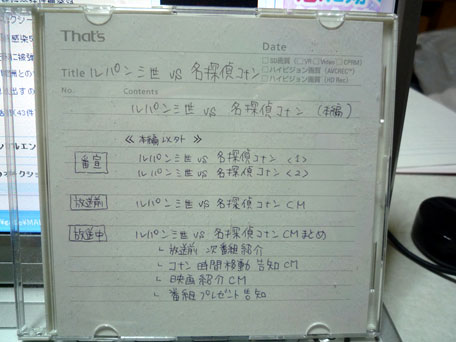 That's
Date
□SD画質 (□VR □Video □CPRM)
□ハイビジョン画質 (AVCREC™)
□ハイビジョン画質 (HD Rec)
Title ルパン三世 vs 名探偵コナン
No. Contents
ルパン三世 vs 名探偵コナン (本編)
≪ 本編以外 ≫
番宣 ルパン三世 vs 名探偵コナン <1>
ルパン三世 vs 名探偵コナン <2>
放送前 ルパン三世 vs 名探偵コナン CM
放送中 ルパン三世 vs 名探偵コナン CMまとめ
└ 放送前 次番組紹介
└ コナン 時間移動 告知 CM
└ 映画紹介 CM
└ 番組プレゼント告知